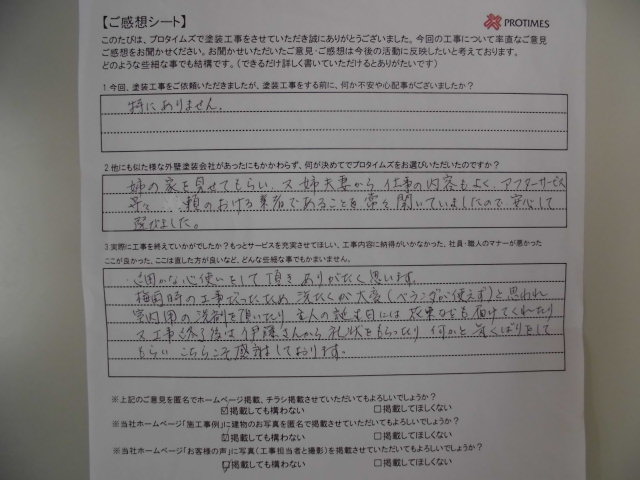 【ご感想シート】
PROTIMES
このたびは、プロタイムズで塗装工事をさせていただき誠にありがとうございました。今回の工事について率直なご意見
ご感想をお聞かせください。お聞かせいただいたご意見・ご感想は今後の活動に反映したいと考えております。
どのような些細な事でも結構です。（できるだけ詳しく書いていただけるとありがたいです）
1 今回、塗装工事をご依頼いただきましたが、塗装工事をする前に、何か不安や心配事がございましたか？
特にありません。
2 他にも似た様な外壁塗装会社があったにもかかわらず、何が決めてでプロタイムズをお選びいただいたのですか？
姉の家を見せてもらい、又姉夫妻から仕事の内容もよく、アフターサービス
等々 頼のおける業者であることを常々聞いていましたので、安心して
選びました。
3 実際に工事を終えていかがでしたか？もっとサービスを充実させてほしい、工事内容に納得がいかなかった、社員・職人のマナーが悪かった
ここが良かった、ここは直した方が良いなど、どんな些細な事でもかまいません。
心使いをして頂きありがたく思います。
梅雨時の工事だったため、洗たくが大変（ベランダが使えず）と思われ
室内用の洗剤を頂いたり、主人の誕生日には花束なども届けてくれたり
又工事終了後は伊藤さんから礼状をもらったり何かと気くばりをして
もらい こちらこそ感謝しております。
※上記のご意見を匿名でホームページ掲載、チラシ掲載させていただいてもよろしいでしょうか？
☑掲載しても構わない □掲載してほしくない
※当社ホームページ「施工事例」に建物のお写真を匿名で掲載させていただいてもよろしいでしょうか？
☑掲載しても構わない □掲載してほしくない
※当社ホームページ「お客様の声」に写真（工事担当者と撮影）を掲載させていただいてもよろしいでしょうか？
☑掲載しても構わない □掲載してほしくない